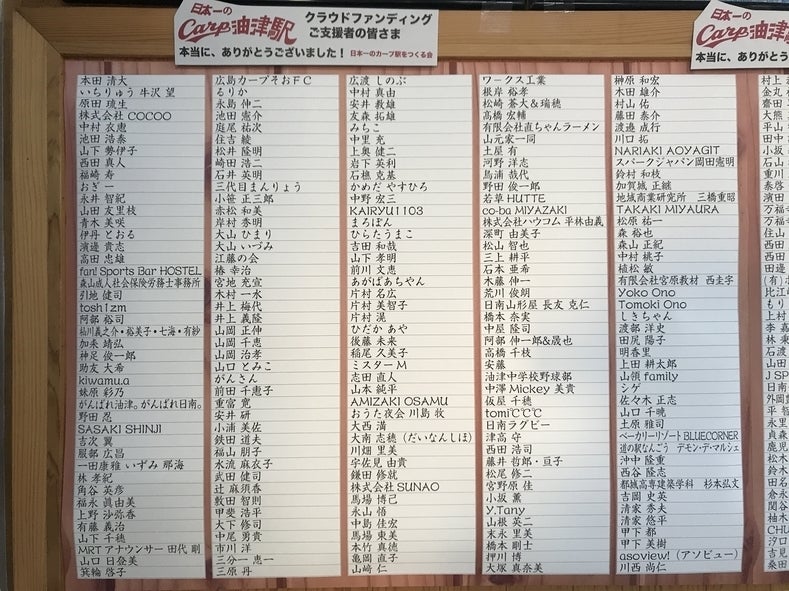 日本一の
Carp油津駅
クラウドファンディング
ご支援者の皆さま
本当に、ありがとうございました！ 日本一のカープ駅をつくる会
日本一の
Carp油津
本当に、ありがとう
本田 清大
いちりゅう 牛沢 望
原田 琉生
株式会社 COCOO
中村 衣恵
池田 浩泰
山下 勢伊子
西田 真人
福崎 寿
おぎー
永井 智紀
山田 友里枝
青木 美咲
伊丹 とおる
濱邊 貴志
高田 忠雄
fan! Sports Bar HOSTEL
森山成人社会保険労務士事務所
引地 健司
tosh1zm
阿部 裕司
稲川義之介・裕美子・七海・有紗
加来 靖弘
神足 俊一郎
助友 大希
kiwamu.a
妹原 彩乃
がんばれ油津。がんばれ日南。
野田 忍
SASAKI SHINJI
吉次 翼
服部 広昌
一田康雅 いずみ 那海
林 孝紀
角谷 英彦
福永 眞由美
上野 沙弥香
有藤 義治
山下 千穂
MRT アナウンサー 田代 剛
山口 日登美
箕輪 啓子
広島カープそおFC
るりか
永島 伸二
池田 憲介
庭尾 祐次
住吉 綾
松井 隆明
崎田 浩二
石井 英明
三代目まんりょう
小笹 正三郎
赤松 和美
岸村 秀明
大山 ひまり
大山 いづみ
江藤の会
椿 幸治
宮地 充宣
木村 一水
井上 梅代
井上 義隆
山岡 正伸
山岡 千恵
山岡 治孝
山口 とみこ
がんさん
前田 千恵子
重富 寛
安井 研
小浦 美佐
鉄田 道夫
福山 朋子
水流 麻衣子
武田 健司
辻 麻須香
数田 智則
甲斐 浩平
大下 修司
中尾 勇貴
市川 洋
三分一 恵一
三原 丹
広渡 しのぶ
中村 真由
安井 救雄
友森 拓雄
みちこ
中里 充
上奥 健二
岩下 英利
石樵 克基
かめだ やすひろ
中野 宏三
KAIRYU1103
まろぽん
ひらたうまこ
吉田 和哉
山下 孝明
前川 文恵
あがぱあちゃん
片村 名広
片村 美智子
片村 滉
ひだか あや
後藤 未来
稲尾 久美子
ミスターM
志田 直人
山本 純平
AMIZAKI OSAMU
おうた夜会 川島 牧
大西 満
大南 志穂（だいなんしほ）
川畑 里美
宇佐見 由貴
鎌田 修就
株式会社 SUNAO
馬場 博己
永山 悟
中島 佳宏
馬場 東美
本竹 真徳
亀岡 直子
山崎 仁
ワークス工業
根岸 裕孝
松崎 蒼大＆瑞穂
高橋 宏輔
有限会社直ちゃんラーメン
山元家一同
土屋 有
河野 洋志
馬浦 哉代
野田 俊一郎
若草 HUTTE
co-ba MIYAZAKI
株式会社ハウコム 平林由義
深町 由美子
松山 智也
三上 耕平
石本 亜希
木藤 伸一
荒川 俊朗
日南山形屋 長友 克仁
橋本 奈実
中屋 隆司
阿部 伸一郎&晟也
高橋 千枝
安藤
油津中学校野球部
中澤 Mickey 美貴
仮屋 千穂
tomi℃℃℃
日南ラグビー
津高 守
西田 浩司
藤井 哲郎・亘子
松尾 修二
宮野原 佳
小坂 薫
y.Tany
山根 英二
末永 里美
橋本 剛士
押川 博
大塚 真奈美
榊原 和宏
木田 雄介
村山 佑
藤田 泰介
渡邉 成行
川口 拓
NARIAKI AOYAGIT
スパークジャパン岡田憲明
鈴村 和枝
加賀城 正継
地域商業研究所 三橋重昭
TAKAKI MIYAURA
松原 祐一
森 裕也
森山 正紀
中村 桃子
植松 敏
有限会社宮原教材 西圭字
Yoko Ono
Tomoki Ono
しきちゃん
渡部 洋史
田尻 陽子
明香里
上田 耕太郎
山領 family
シゲ
佐々木 正志
山口 千暁
土原 雅司
ベーカリーリゾートBLUECORNER
道の駅なんごう デモン・デ・マルシェ
沖中 隆重
西谷 隆志
都城高専建築学科 杉本弘文
吉岡 史英
清家 秀夫
清家 悠平
甲下 都
甲下 美樹
asoview!（アソビュー）
川西 尚仁